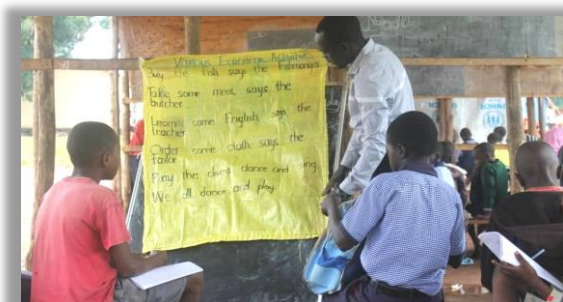 Various Economic Activities
Buy the fish says the fishmonger
Take some meat, says the
butcher
Learn some English says the
teacher
Order some cloth says the
tailor
Play the drum, dance and sing
We all dance and play